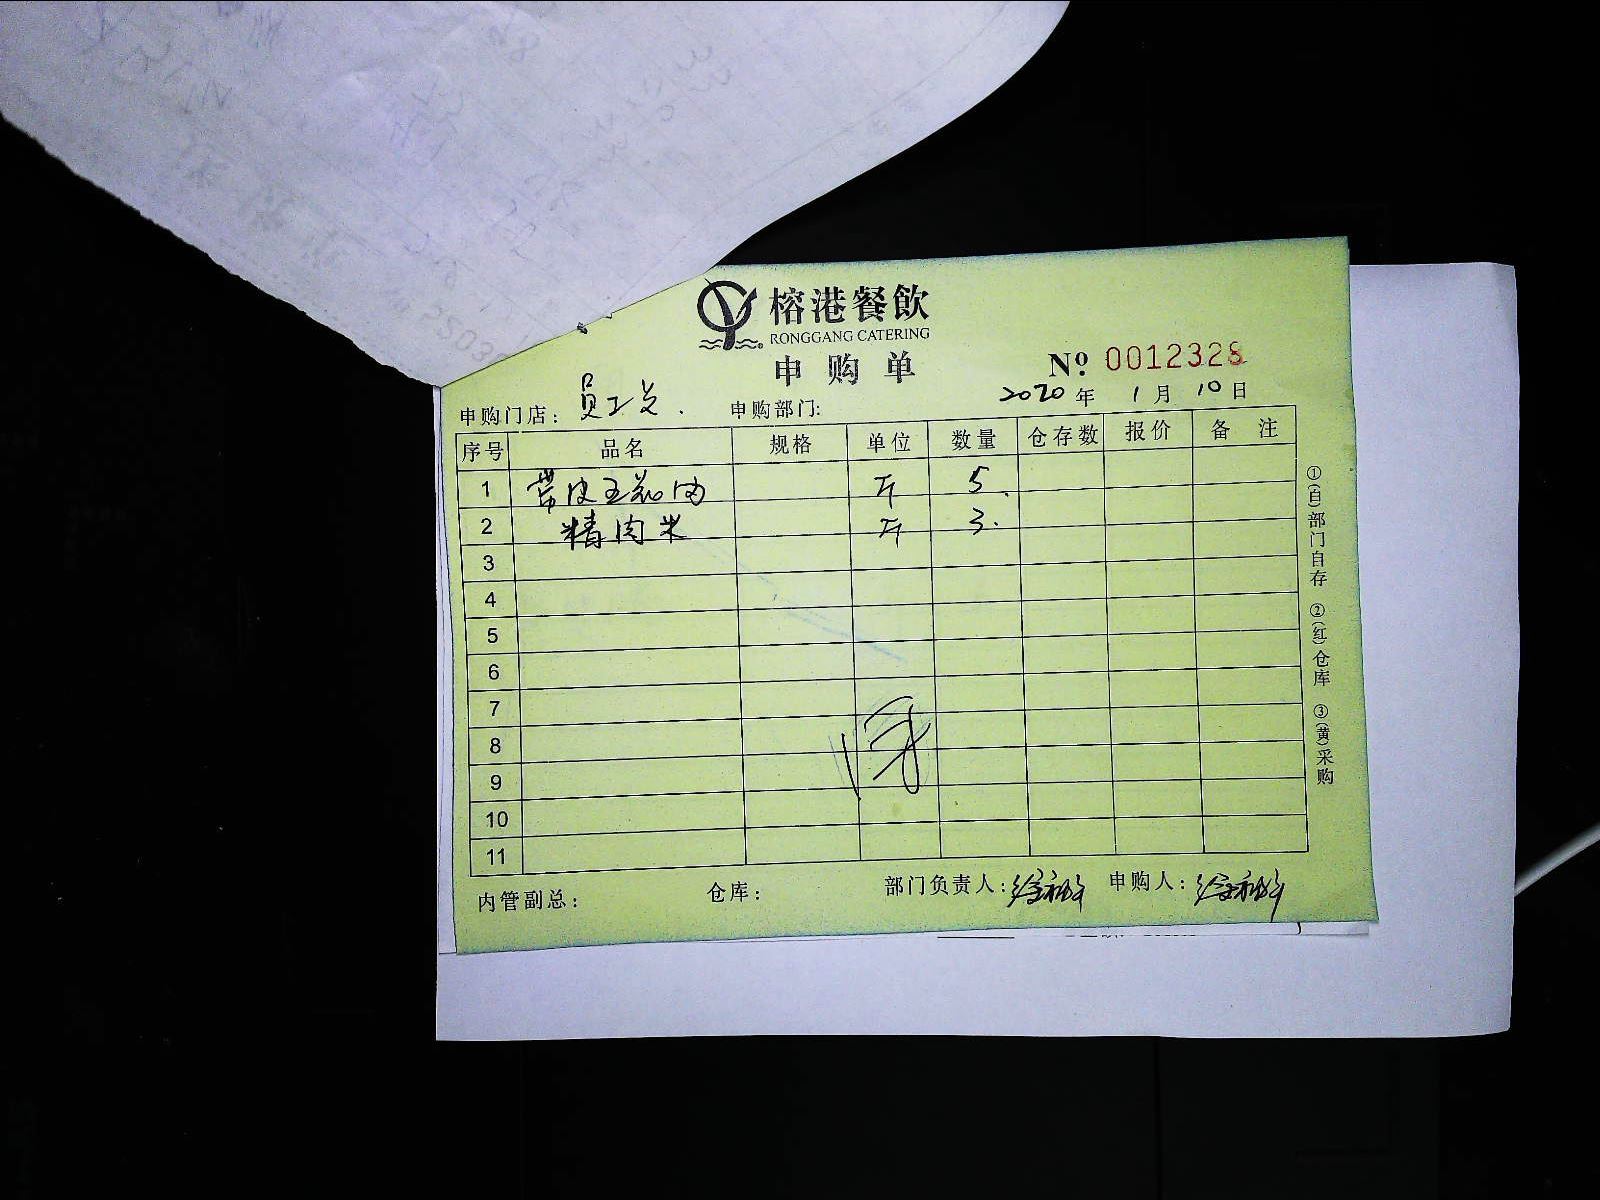 榕港餐飲
RONGGANG CATERING
申购单
№ 0012328
2020年 1月 10日
申购门店：员工 申购部门:
序号 品名 规格 单位 数量 仓存数 报价 备 注
1 带皮五花肉 斤 5.
2 精肉米 斤 3.
3
4
5
6
7
8
9
10
11
内管副总： 仓库： 部门负责人： 申购人：
①(白)部门自存 ②(红)仓库 ③(黄)采购